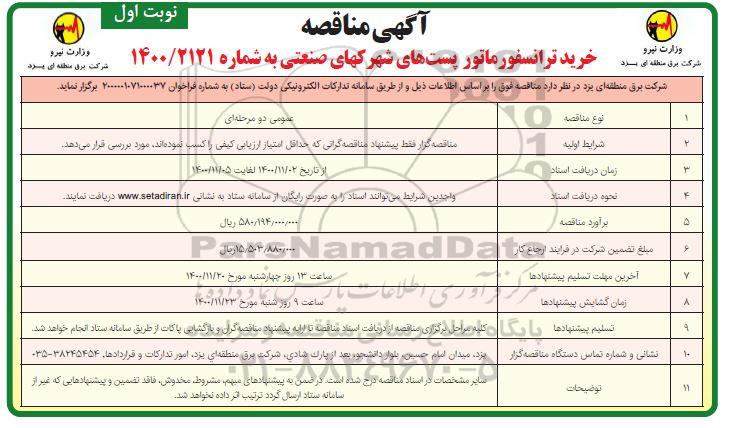 نوبت اول
آگهی مناقصه
خرید ترانسفورماتور پست‌های شهرکهای صنعتی به شماره ۱۴۰۰/۲۱۲۱
وزارت نیرو
شرکت برق منطقه ای یزد
وزارت نیرو
شرکت برق منطقه ای یزد
شرکت برق منطقه‌ای یزد در نظر دارد مناقصه فوق را بر اساس اطلاعات ذیل و از طریق سامانه تدارکات الکترونیکی دولت (ستاد) به شماره فراخوان ۲۰۰۰۰۰۱۰۷۱۰۰۰۰۳۷ برگزار نماید.
۱ نوع مناقصه عمومی دو مرحله‌ای
۲ شرایط اولیه مناقصه‌گزار فقط پیشنهاد مناقصه‌گرانی که حداقل امتیاز ارزیابی کیفی را کسب نموده‌اند، مورد بررسی قرار می‌دهد.
۳ زمان دریافت اسناد از تاریخ ۱۴۰۰/۱۱/۰۲ لغایت ۱۴۰۰/۱۱/۰۵
۴ نحوه دریافت اسناد واجدین شرایط می‌توانند اسناد را به صورت رایگان از سامانه ستاد به نشانی www.setadiran.ir دریافت نمایند.
۵ برآورد مناقصه ۵۸۰/۱۹۴/۰۰۰/۰۰۰ ریال
۶ مبلغ تضمین شرکت در فرایند ارجاع کار ۱۵/۵۰۳/۸۸۰/۰۰۰ریال
۷ آخرین مهلت تسلیم پیشنهادها ساعت ۱۳ روز چهارشنبه مورخ ۱۴۰۰/۱۱/۲۰
۸ زمان گشایش پیشنهادها ساعت ۹ روز شنبه مورخ ۱۴۰۰/۱۱/۲۳
۹ تسلیم پیشنهادها کلیه مراحل برگزاری مناقصه از دریافت اسناد مناقصه تا ارایه پیشنهاد مناقصه‌گران و بازگشایی پاکات از طریق سامانه ستاد انجام خواهد شد.
۱۰ نشانی و شماره تماس دستگاه مناقصه‌گزار یزد، میدان امام حسین، بلوار دانشجو، بعد از پارك شادي، شرکت برق منطقه‌ای یزد، امور تدارکات و قراردادها، ۳۸۲۴۵۴۵۴-۰۳۵
۱۱ توضیحات سایر مشخصات در اسناد مناقصه درج شده است. در ضمن به پیشنهادهای مبهم، مشروط، مخدوش، فاقد تضمین و پیشنهادهایی که غیر از
سامانه ستاد ارسال گردد ترتیب اثر داده نخواهد شد.
ParsNamadData
مرکز فرآوری اطلاعات پارس نماد داده ها
پایگاه اطلاع رسانی مناقصه و مزایده
۰۲۱-۸۸۳۴۹۶۷۰-۵